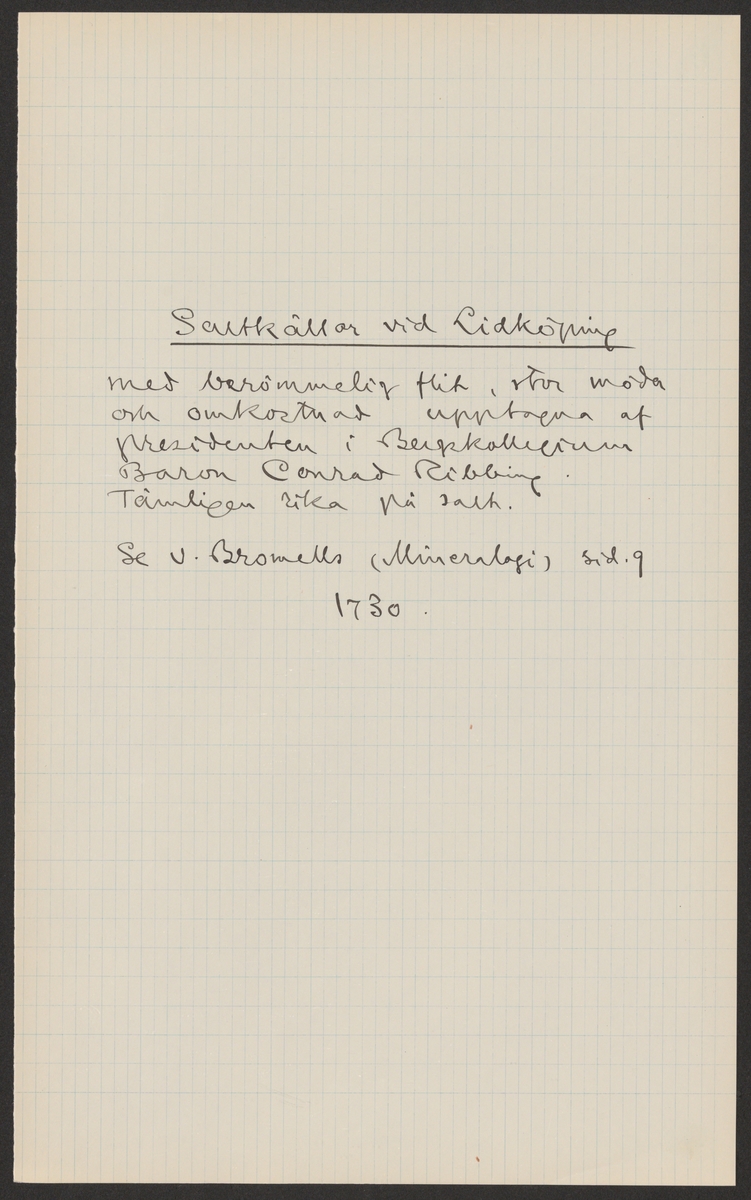 Saltkällor vid Lidköping
med berömmelig flit, stor möda
och omkostnad upptagna af
presidenten i Bergskollegium
Baron Conrad Ribbing.
Tämligen rika på salt.
Se v. Bromells (Mineralogi) sid. 9
1730.